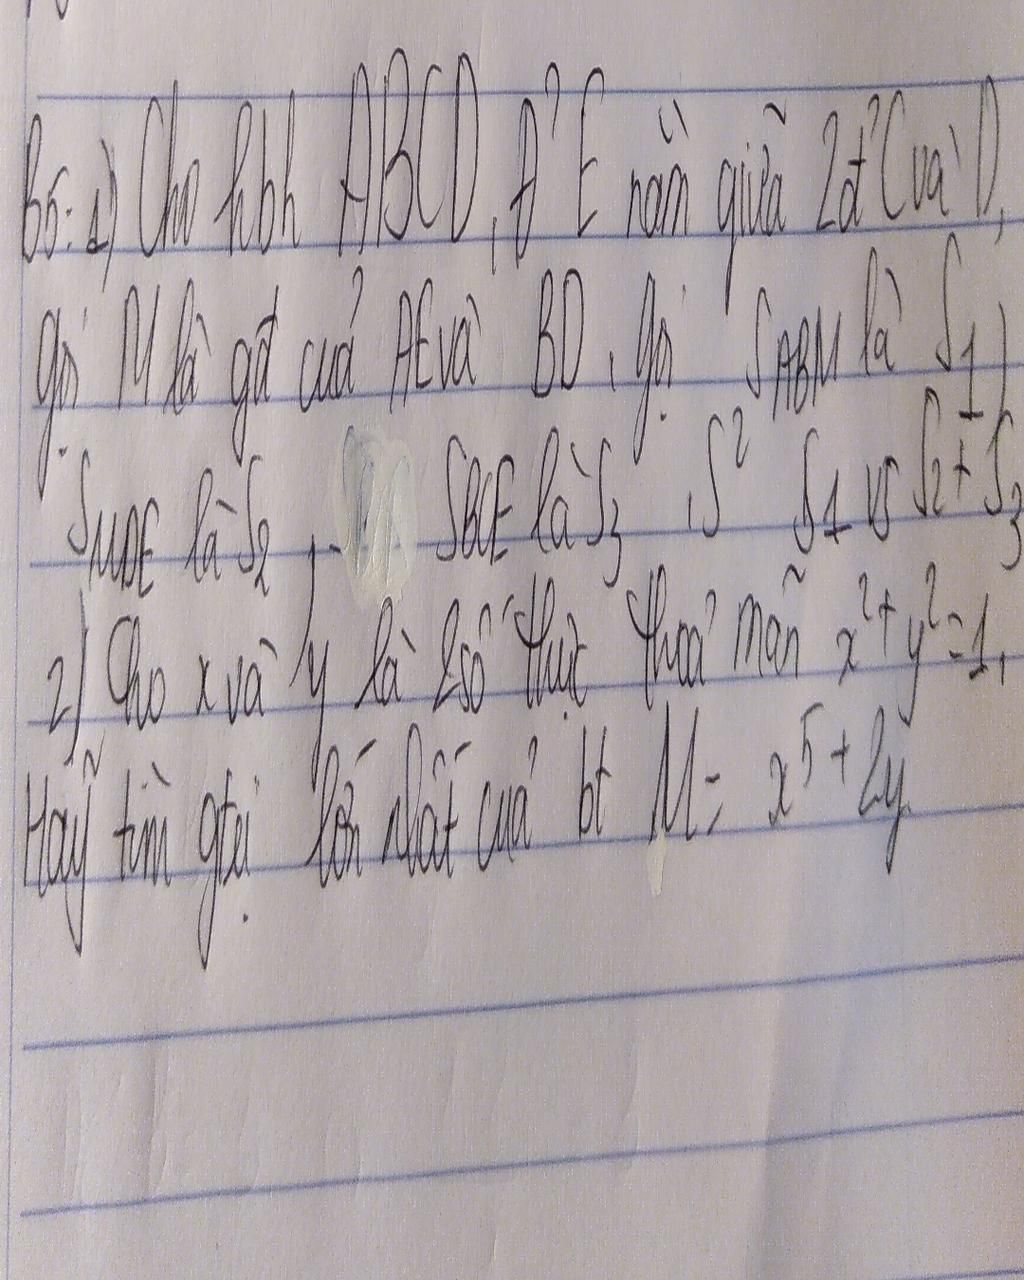 B5: 1) Cho hbh ABCD, Đ² E nằm giữa 2đ² C và D,
gọi M là gđ của AE và BD, gọi SABM là S1,
SMDE là S2, SBCE là S3, S² S1 vs S2 + S3
2) Cho x và y là 2 số thực thoả mãn x² + y² = 1,
Hãy tìm gtrị lớn nhất của bt M = x⁵ + 2y